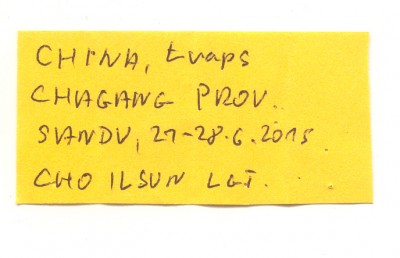 CHINA, tvaps
CHAGANG PROV.
SVANDV, 27-28.6.2015.
CHO ILSUN LGT.